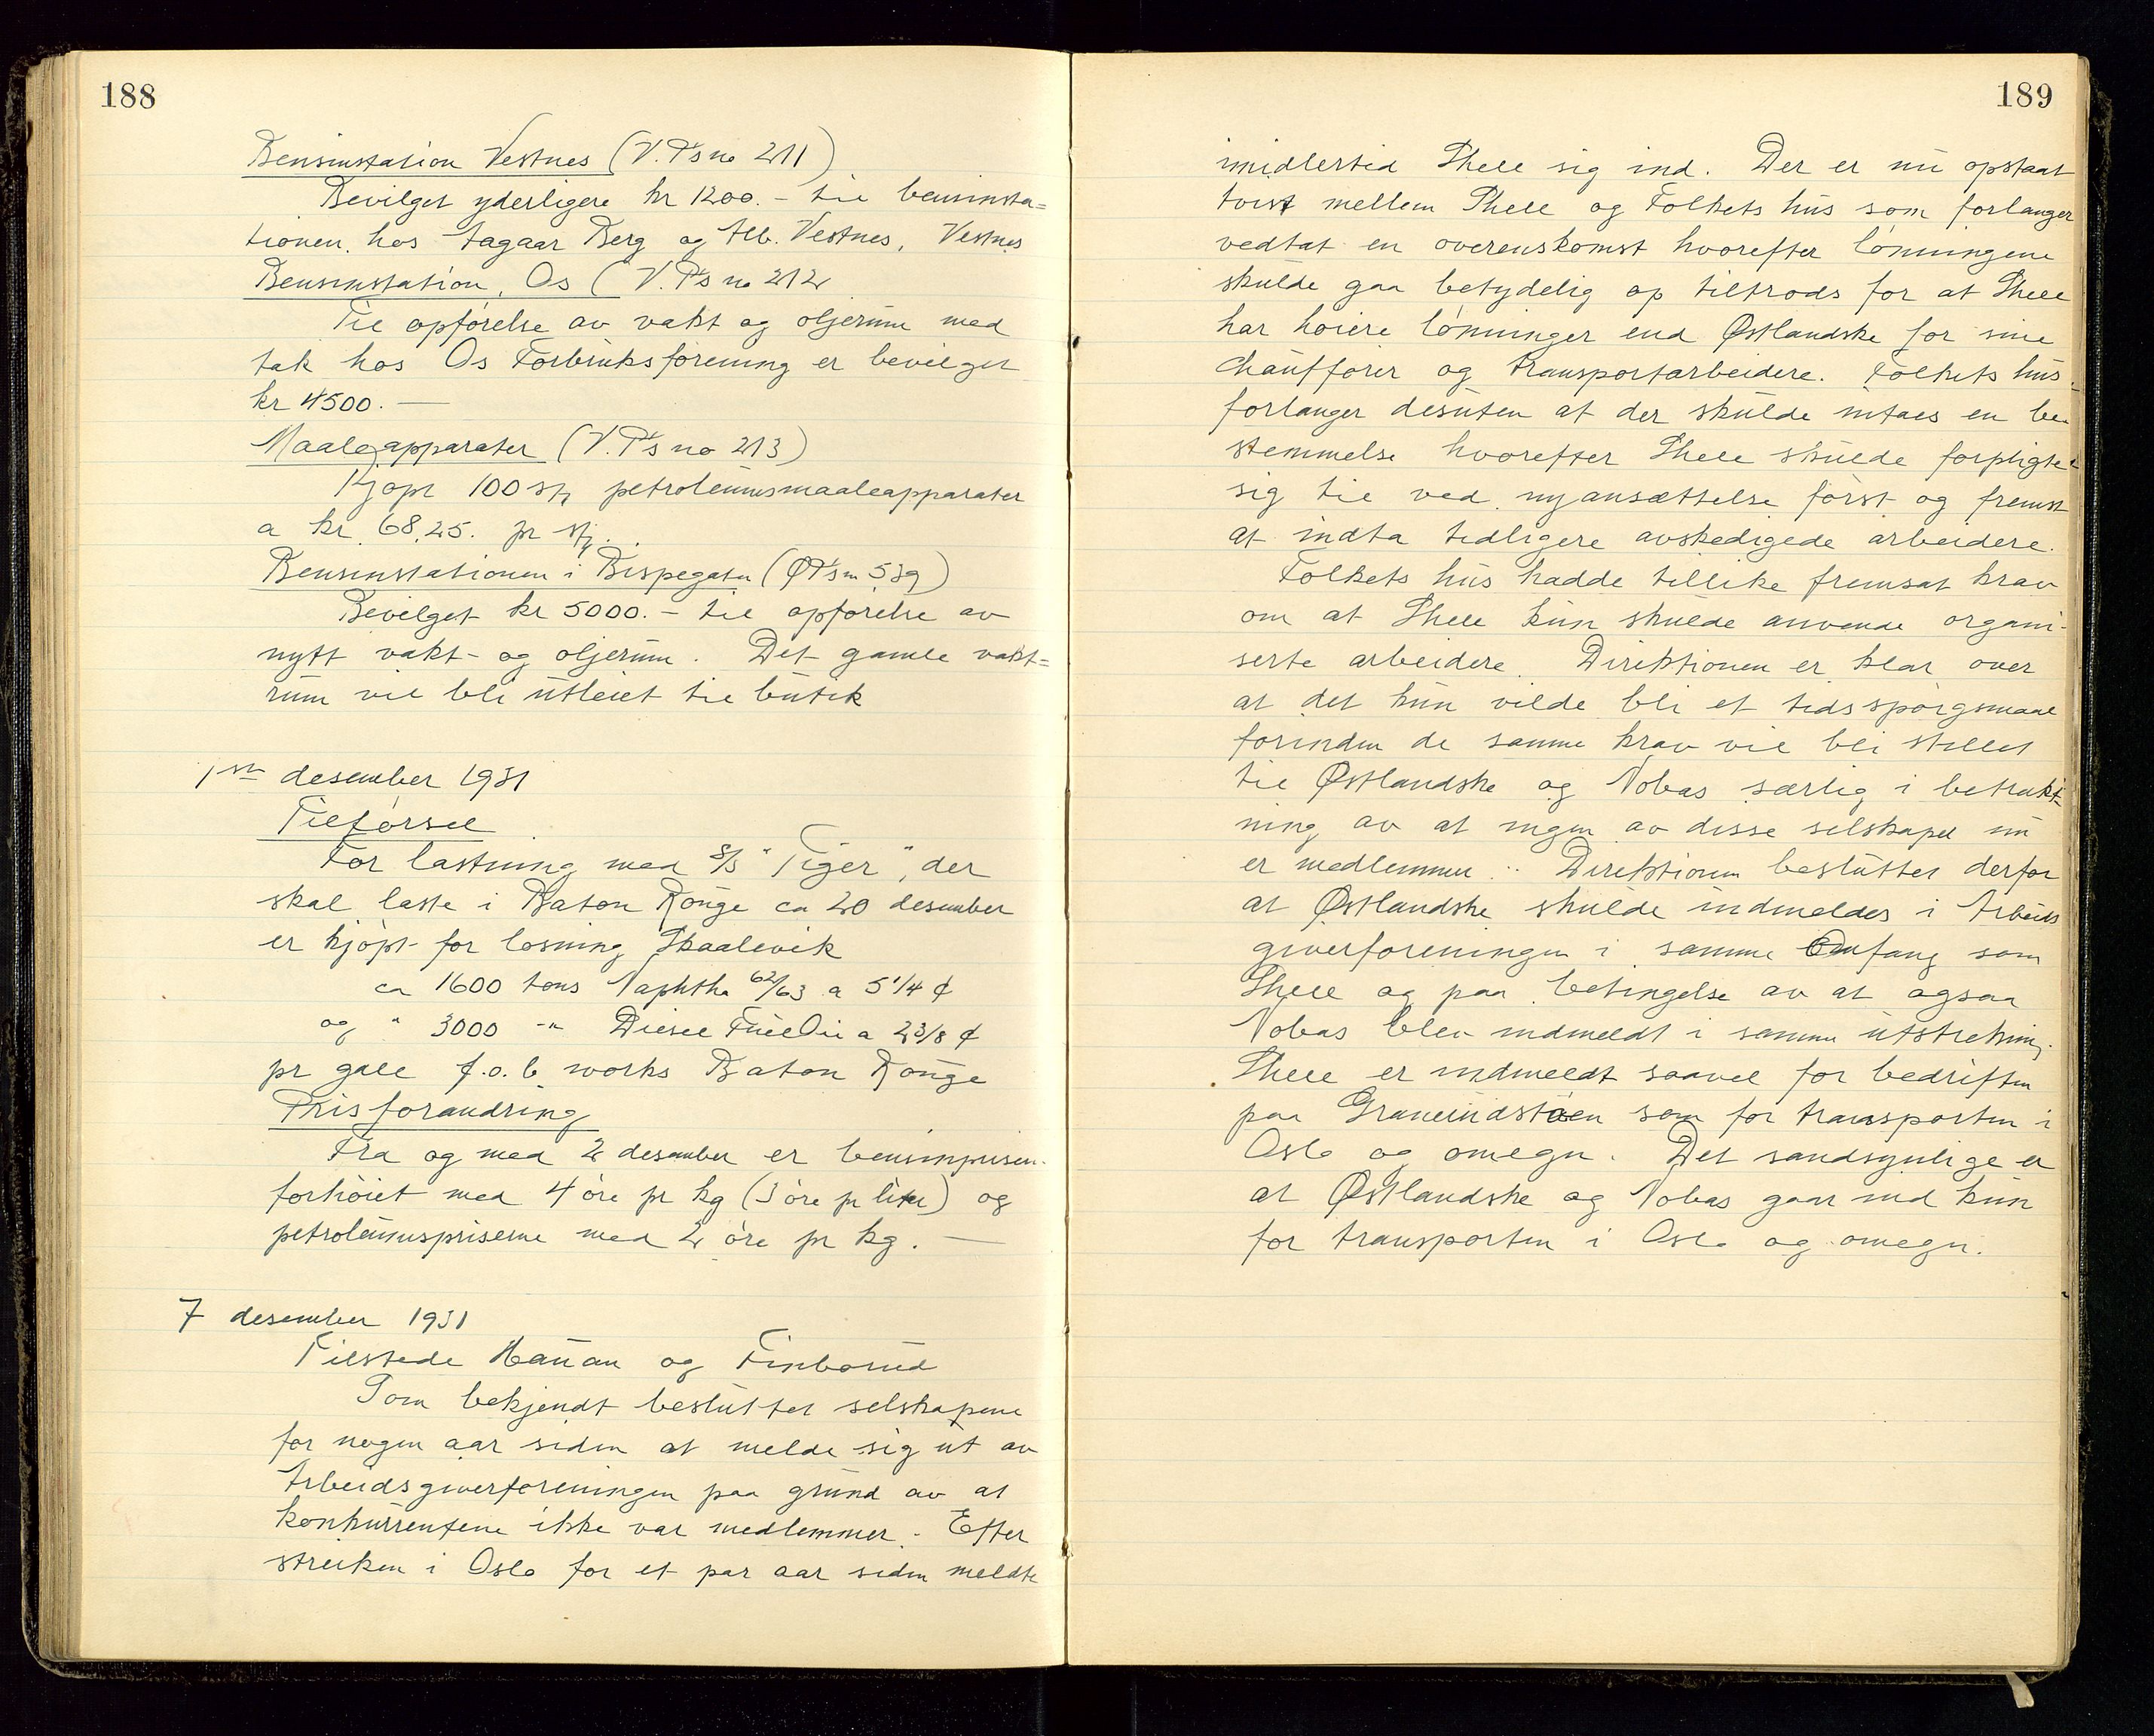 188
Bensinstation Vestnes (V.P's no 211)
Bevilget yderligere kr 1200.- til bensinsta=
tionen hos Aagaar Berg og Alb. Vestnes, Vestnes
Bensinstation, Os (V.P's no 212
Til opførelse av vakt og oljerum med
tak hos Os Forbruksforening er bevilget
kr 4500.—
Maaleapparater (V.P's no 213)
Kjøpt 100 stk petroleumsmaaleapparater
a kr 68,25. pr stk.
Bensinstationen i Bispegaten (ØP's no 539)
Bevilget kr 5000.- til opførelse av
nytt vakt- og oljerum. Det gamle vakt=
rum vil bli utleiet til butik
1ste desember 1931
Tilførsel
For lastning med S/S "Tiger", der
skal laste i Baton Rouge ca 20 desember
er kjøpt for losning Skaalevik
ca 1600 tons Naphtha 62/63 a 5 1/4 ¢
og " 3000 -"- Diesel Fuel Oil a 2 3/8 ¢
pr gall f.o.b works Baton Rouge
Prisforandring
Fra og med 2 desember er bensinprisen
forhøiet med 4 øre pr kg (3 øre pr liter) og
petroleumspriserne med 2 øre pr kg.—
7 desember 1931
Tilstede Hauan og Finborud
Som bekjendt besluttet selskapene
for nogen aar siden at melde sig ut av
Arbeidsgiverforeningen paa grund av at
konkurrentene ikke var medlemmer. Efter
streiken i Oslo for et par aar siden meldte
189
imidlertid Shell sig ind. Der er nu opstaat
tvist mellem Shell og Folkets hus som forlanger
vedtat en overenskomst hvorefter lønningene
skulde gaa betydelig op tiltrods for at Shell
har høiere lønninger end Østlandske for sine
Chauffører og transportarbeidere. Folkets hus
forlanger desuten at der skulde intaes en be-
stemmelse hvorefter Shell skulde forpligte
sig til ved nyansættelse først og fremst
at indta tidligere avskedigede arbeidere.
Folkets hus hadde tillike fremsat krav
om at Shell kun skulde anvende organi-
serte arbeidere. Direktionen er klar over
at det kun vilde bli et tidsspørgsmaal
forinden de samme krav vil bli stillet
til Østlandske og Nobas særlig i betrakt-
ning av at ingen av disse selskaper nu
er medlemmer. Direktionen besluttet derfor
at Østlandske skulde indmeldes i Arbeids
giverforeningen i samme Omfang som
Shell og paa betingelse av at ogsaa
Nobas blev indmeldt i samme utstrekning.
Shell er indmeldt saavel for bedriften
paa som for transporten i
Oslo og omegn. Det sandsynlige er
at Østlandske og Nobas gaar ind kun
for transporten i Oslo og omegn.